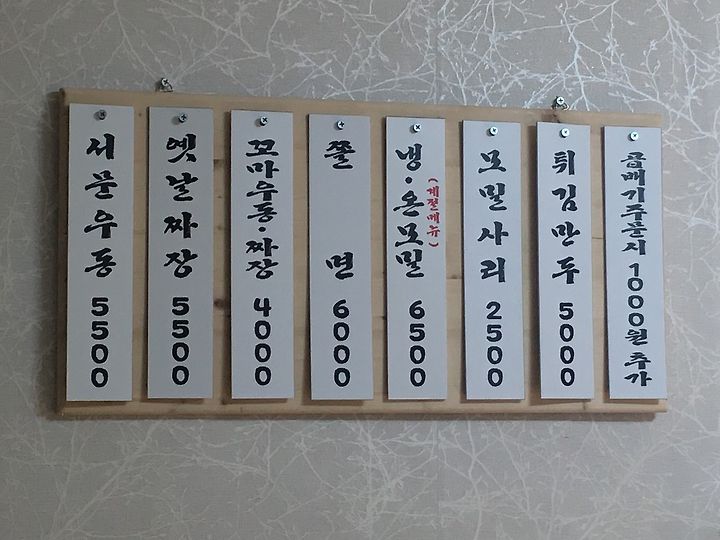 서문우동 5500
옛날짜장 5500
꼬마우동·짜장 4000
쫄면 6000
냉·온모밀 6500
(계절메뉴)
모밀사리 2500
튀김만두 5000
곱배기주문시 1000원 추가